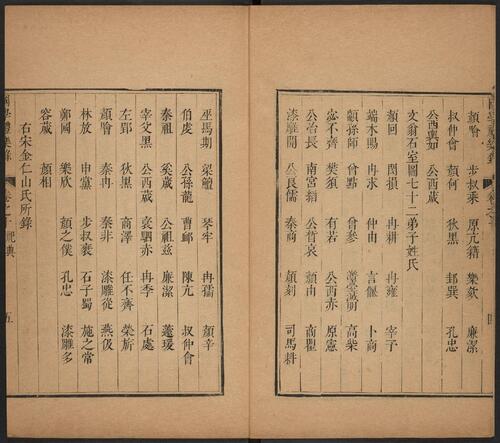 顏噲　步叔乘　原亢籍　樂欬　廉潔
叔仲會　顏何　狄黑　邽巽　孔忠
公西輿如　公西蒧
文翁石室圖七十二弟子姓氏
顏回　閔損　冉耕　冉雍　宰予
端木賜　冉求　仲由　言偃　卜商
顓孫師　曾點　曾參　澹臺滅明　高柴
宓不齊　樊須　有若　公西赤　原憲
公冶長　南宮縚　公晳哀　顏由　商瞿
漆雕開　公良儒　秦商　顏刻　司馬耕
巫馬期　梁鱣　琴牢　冉孺　顏辛
伯虔　公孫龍　曹卹　陳亢　叔仲會
秦祖　奚蒧　公祖茲　廉潔　蘧瑗
宰父黑　公西蒧　壤駟赤　冉季　石處
左郢　狄黑　商澤　任不齊　榮旂
顏噲　秦冉　秦非　漆雕從　燕伋
林放　申黨　步叔乘　石子蜀　施之常
鄭國　樂欣　顏之僕　孔忠　漆雕多
容蒧　顏相
右宋金仁山氏所錄
五